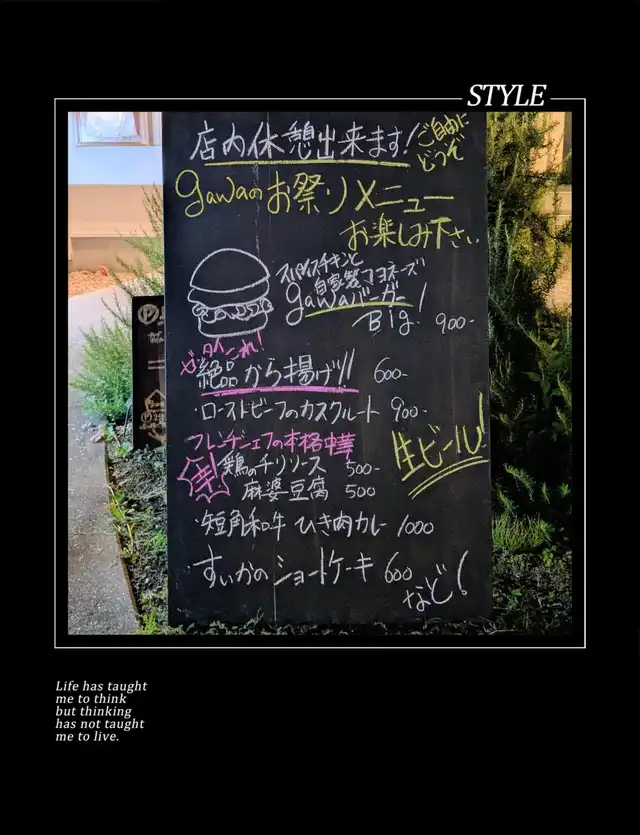 STYLE
店内休憩出来ます!
ご自由に
どうぞ
gawaのお祭りメニュー
お楽しみ下さい
スパイスチキンと
自家製マヨネーズ
gawaバーガー!
Big. 900-
ゼッタイこれ!
絶品から揚げ!! 600-
・ローストビーフのカスクルート 900-
フレンチシェフの本格中華
辛!
鶏のチリソース 500-
麻婆豆腐 500
生ビール!
・短角和牛 ひき肉カレー 1000
・すいかのショートケーキ 600
など!
Life has taught
me to think
but thinking
has not taught
me to live.